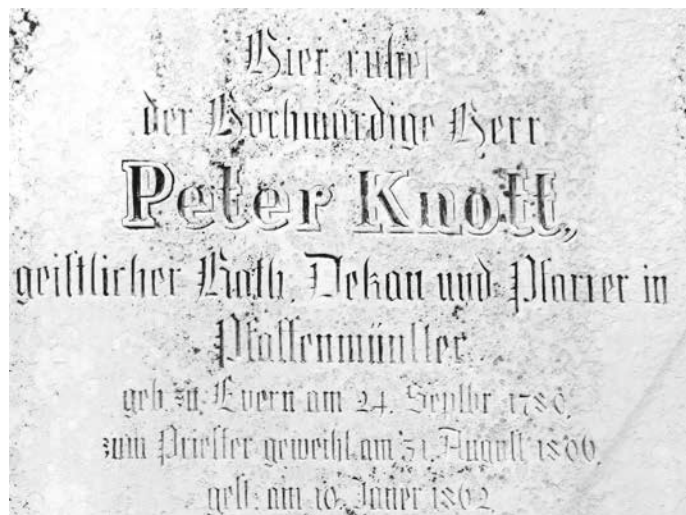 Hier ruhet
der Hochwürdige Herr
Peter Knott,
geistlicher Rath, Dekan und Pfarrer in
Pfaffenmünster.
geb. zu am 24. Septbr
zum Priester geweiht am 31. August 1806,
gest. am 10. Jäner 1862